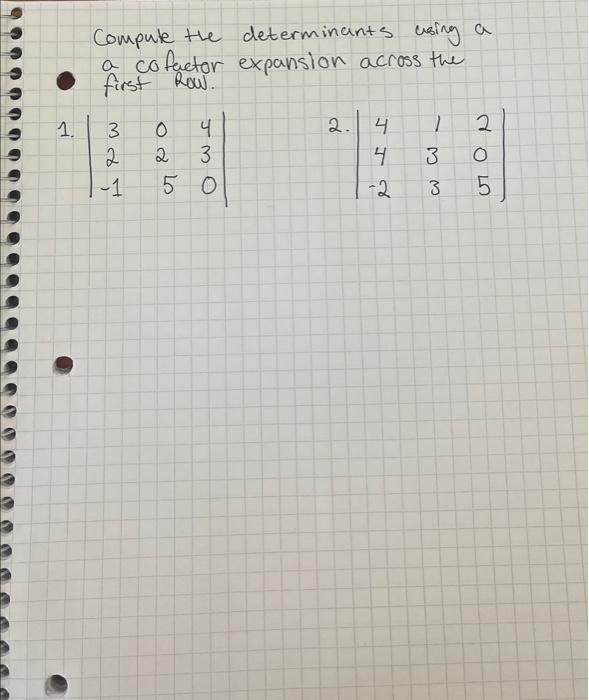 Compute the determinants using a
a cofactor expansion across the
first Row.
1. | 3 0 4 | 2. | 4 1 2 |
| 2 2 3 | | 4 3 0 |
| -1 5 0 | | -2 3 5 |